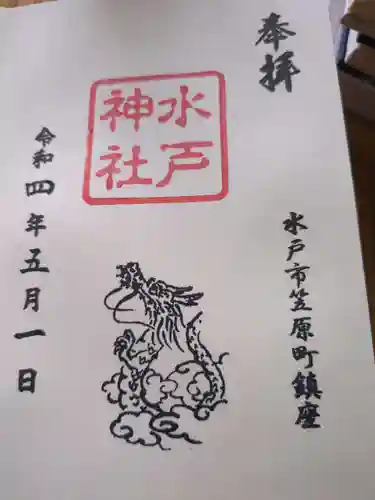 奉拝
水戸市笠原町鎮座
水戸
神社
令和四年五月一日